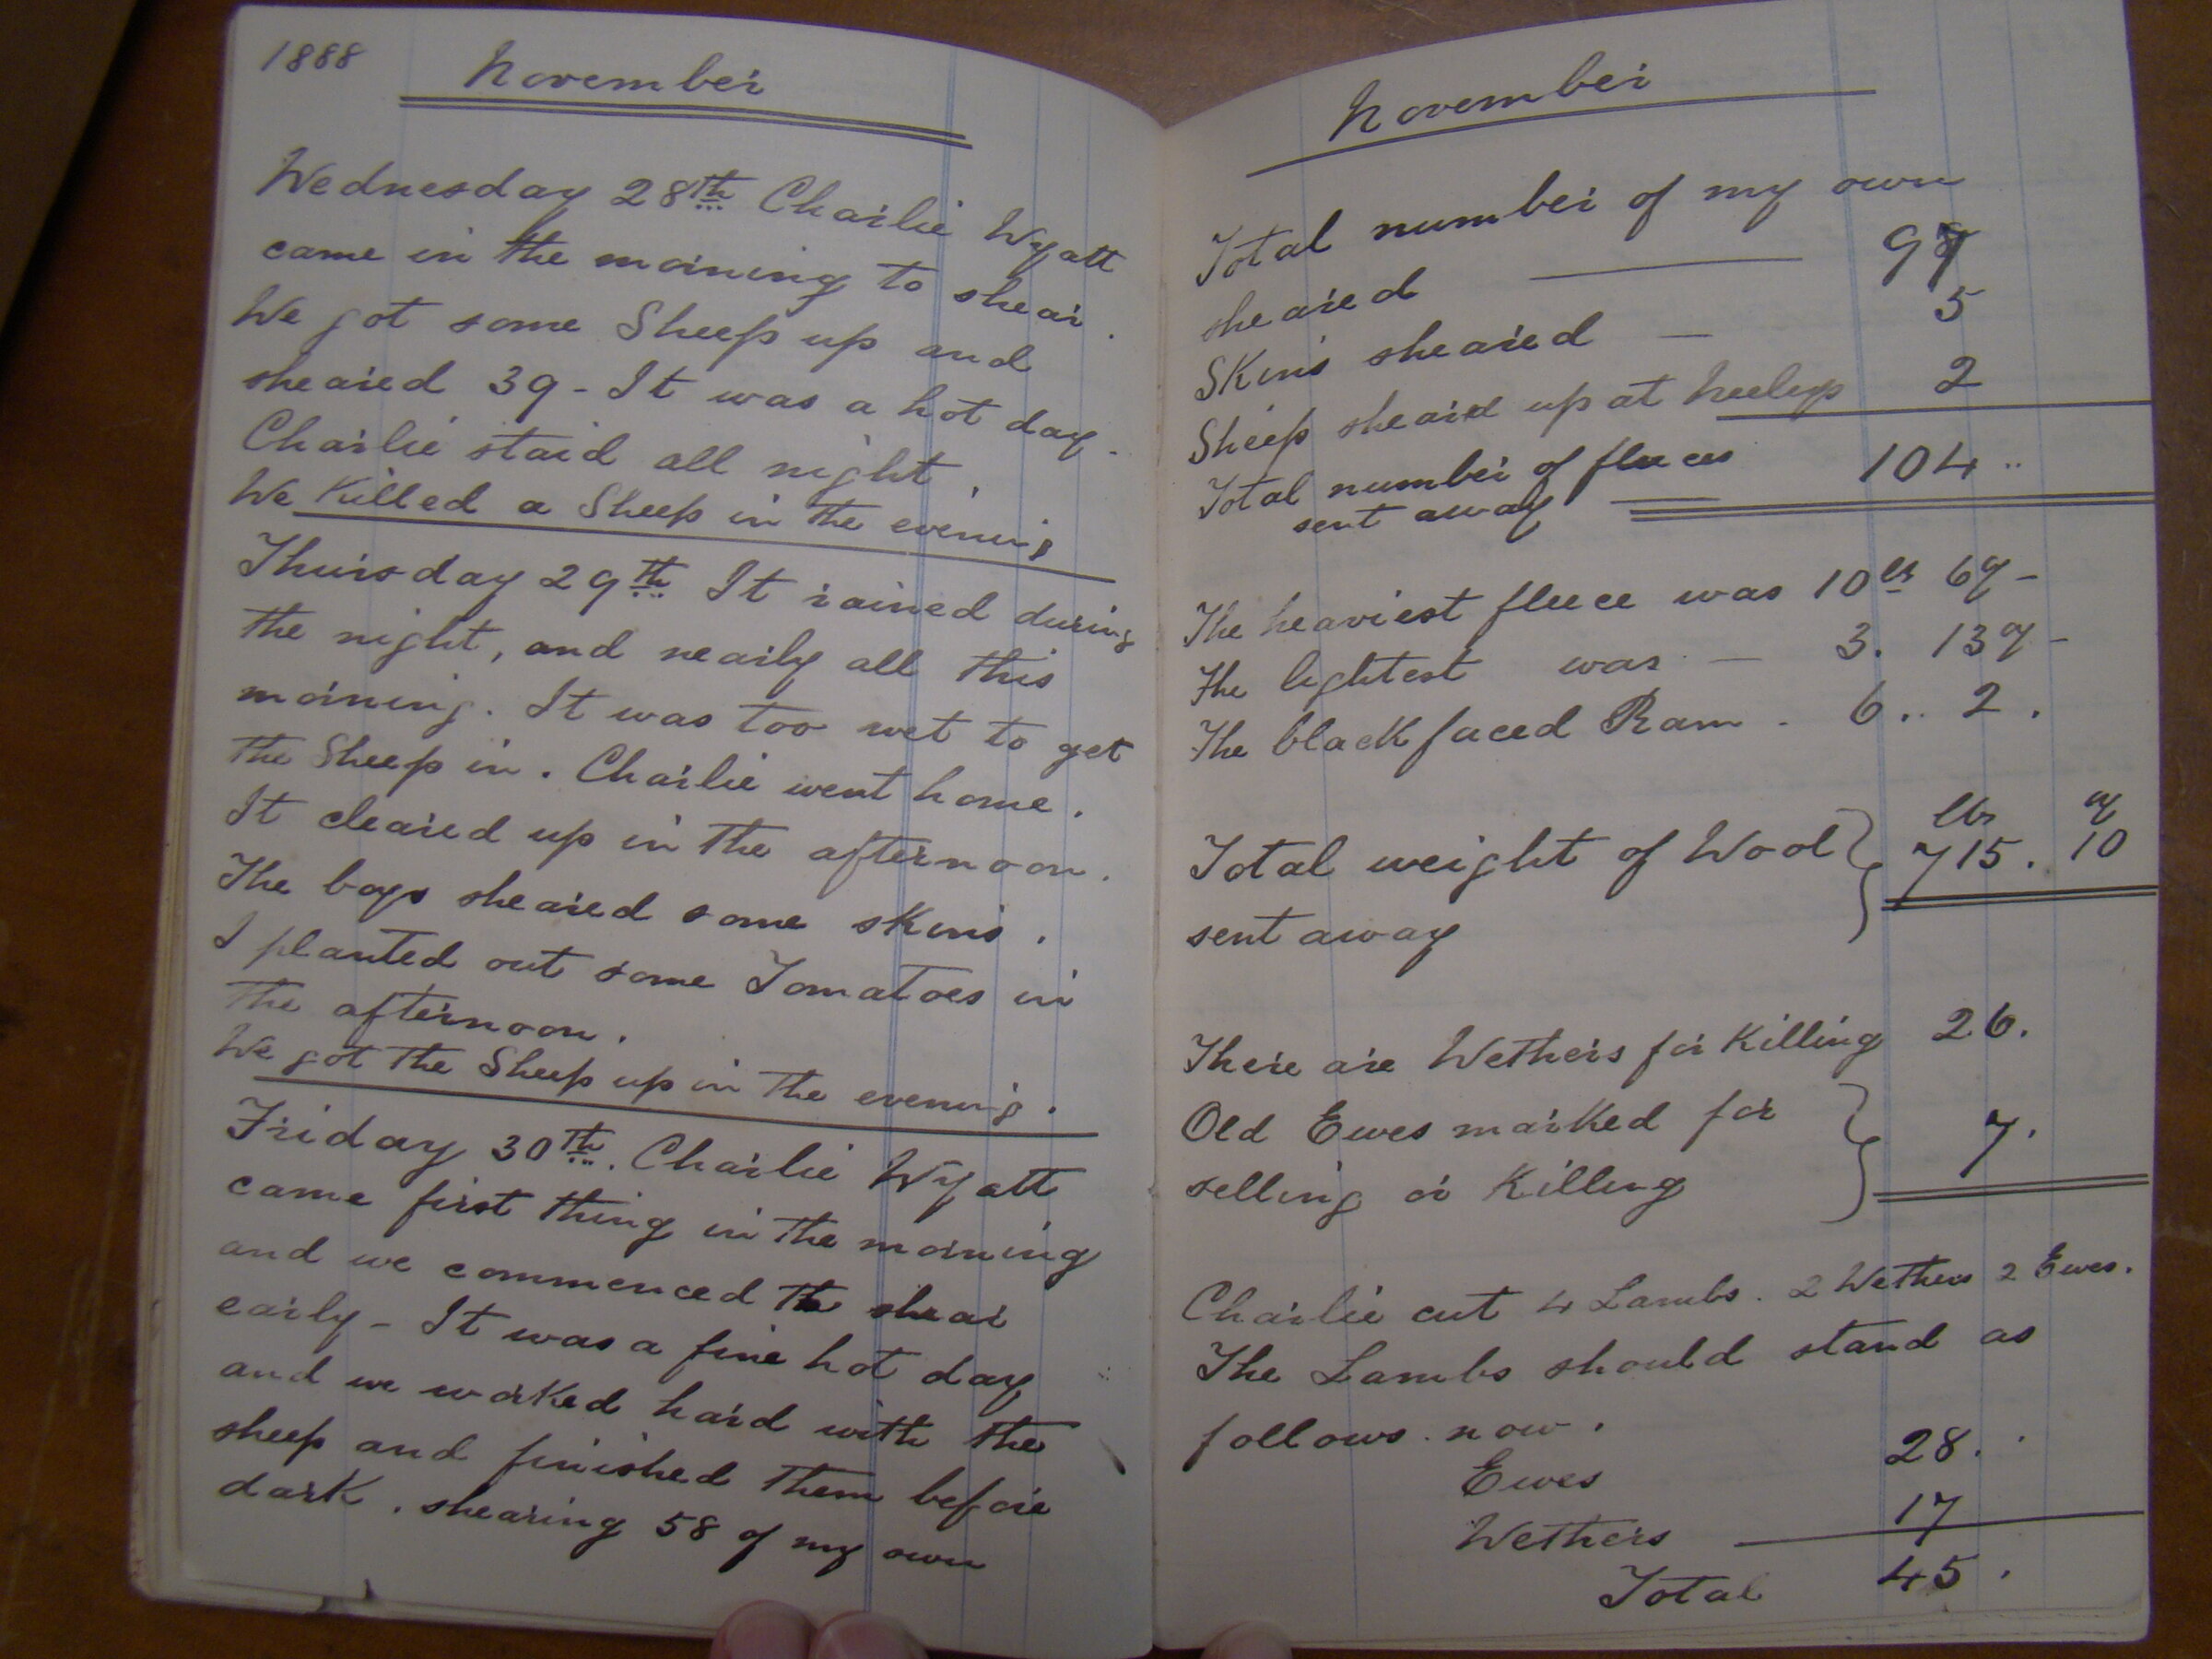 1888 November
Wednesday 28th Charlie Wyatt
came in the morning to shear.
We got some Sheep up and
sheared 39 - It was a hot day -
Charlie staid all night.
We Killed a Sheep in the evening
Thursday 29th It rained during
the night, and nearly all this
morning. It was too wet to get
the Sheep in. Charlie went home.
It cleared up in the afternoon.
The boys sheared some skins.
I planted out some Tomatoes in
the afternoon.
We got the Sheep up in the evening.
Friday 30th. Charlie Wyatt
came first thing in the morning
and we commenced to shear
early - It was a fine hot day
and we worked hard with the
sheep and finished them before
dark. shearing 58 of my own
November
Total number of my own
sheared 97
Skins sheared - 5
Sheep sheared up at 2
Total number of fleeces 104
sent away
The heaviest fleece was 10 lbs 6oz -
The lightest was - 3. 13oz -
The black faced Ram - 6.. 2.
lbs oz
Total weight of Wool 715. 10
sent away
There are Wethers for Killing 26.
Old Ewes marked for
selling or Killing 7.
Charlie cut 4 Lambs. 2 Wethers 2 Ewes.
The Lambs should stand as
follows now.
Ewes 28.
Wethers 17
Total 45.